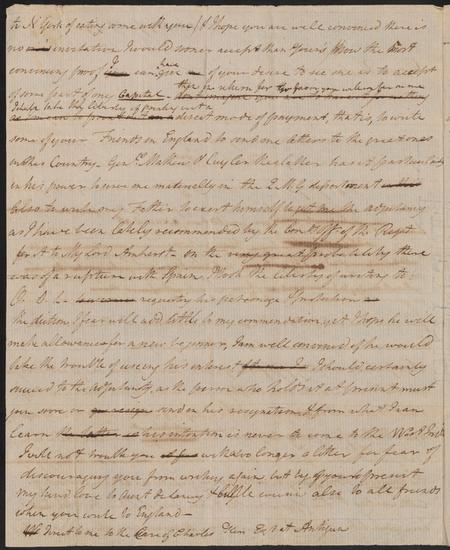 to N York of eating some with you, & I hope you are well convinced there is
no invitation I would sooner accept than Yours. Now the most
convincing proof I can give of your desire to see me is to accept
of some part of my Capital
I shall take the liberty of pointing out a direct mode of payment, that is, to write
some of your Friends in England to send me letters to the great ones
in this Country. Genl. Mathew & Cuyler has it particularly
in his power to serve me materially in the Q.M.G. department
to exert himself to get me the adjutancy
as I have been lately recommended by the Comg. Offr. of the Regt
for it to My Lord Amherst. On the very great probability there
was of a rupture with Spain, I took the liberty of writing to
O. D. L. requesting his patronage & protection
the diction I fear will add little to my commendation, yet I hope he will
make allowances for a new beginner. I am well convinced if he would
take the trouble of useing his interest I should certainly
succeed to the adjutancy, as the person who holds it at present must
very soon or send in his resignation, & from what I can
learn his intention is never to come to the West Indies
I will not trouble you with a longer letter for fear of
discouraging you from writing again, but beg you'd present
my kind love to Aunt Delancey & little cousin also to all friends
when you write to England—
Direct to me to the Care of Charles Esqr. at Antigua